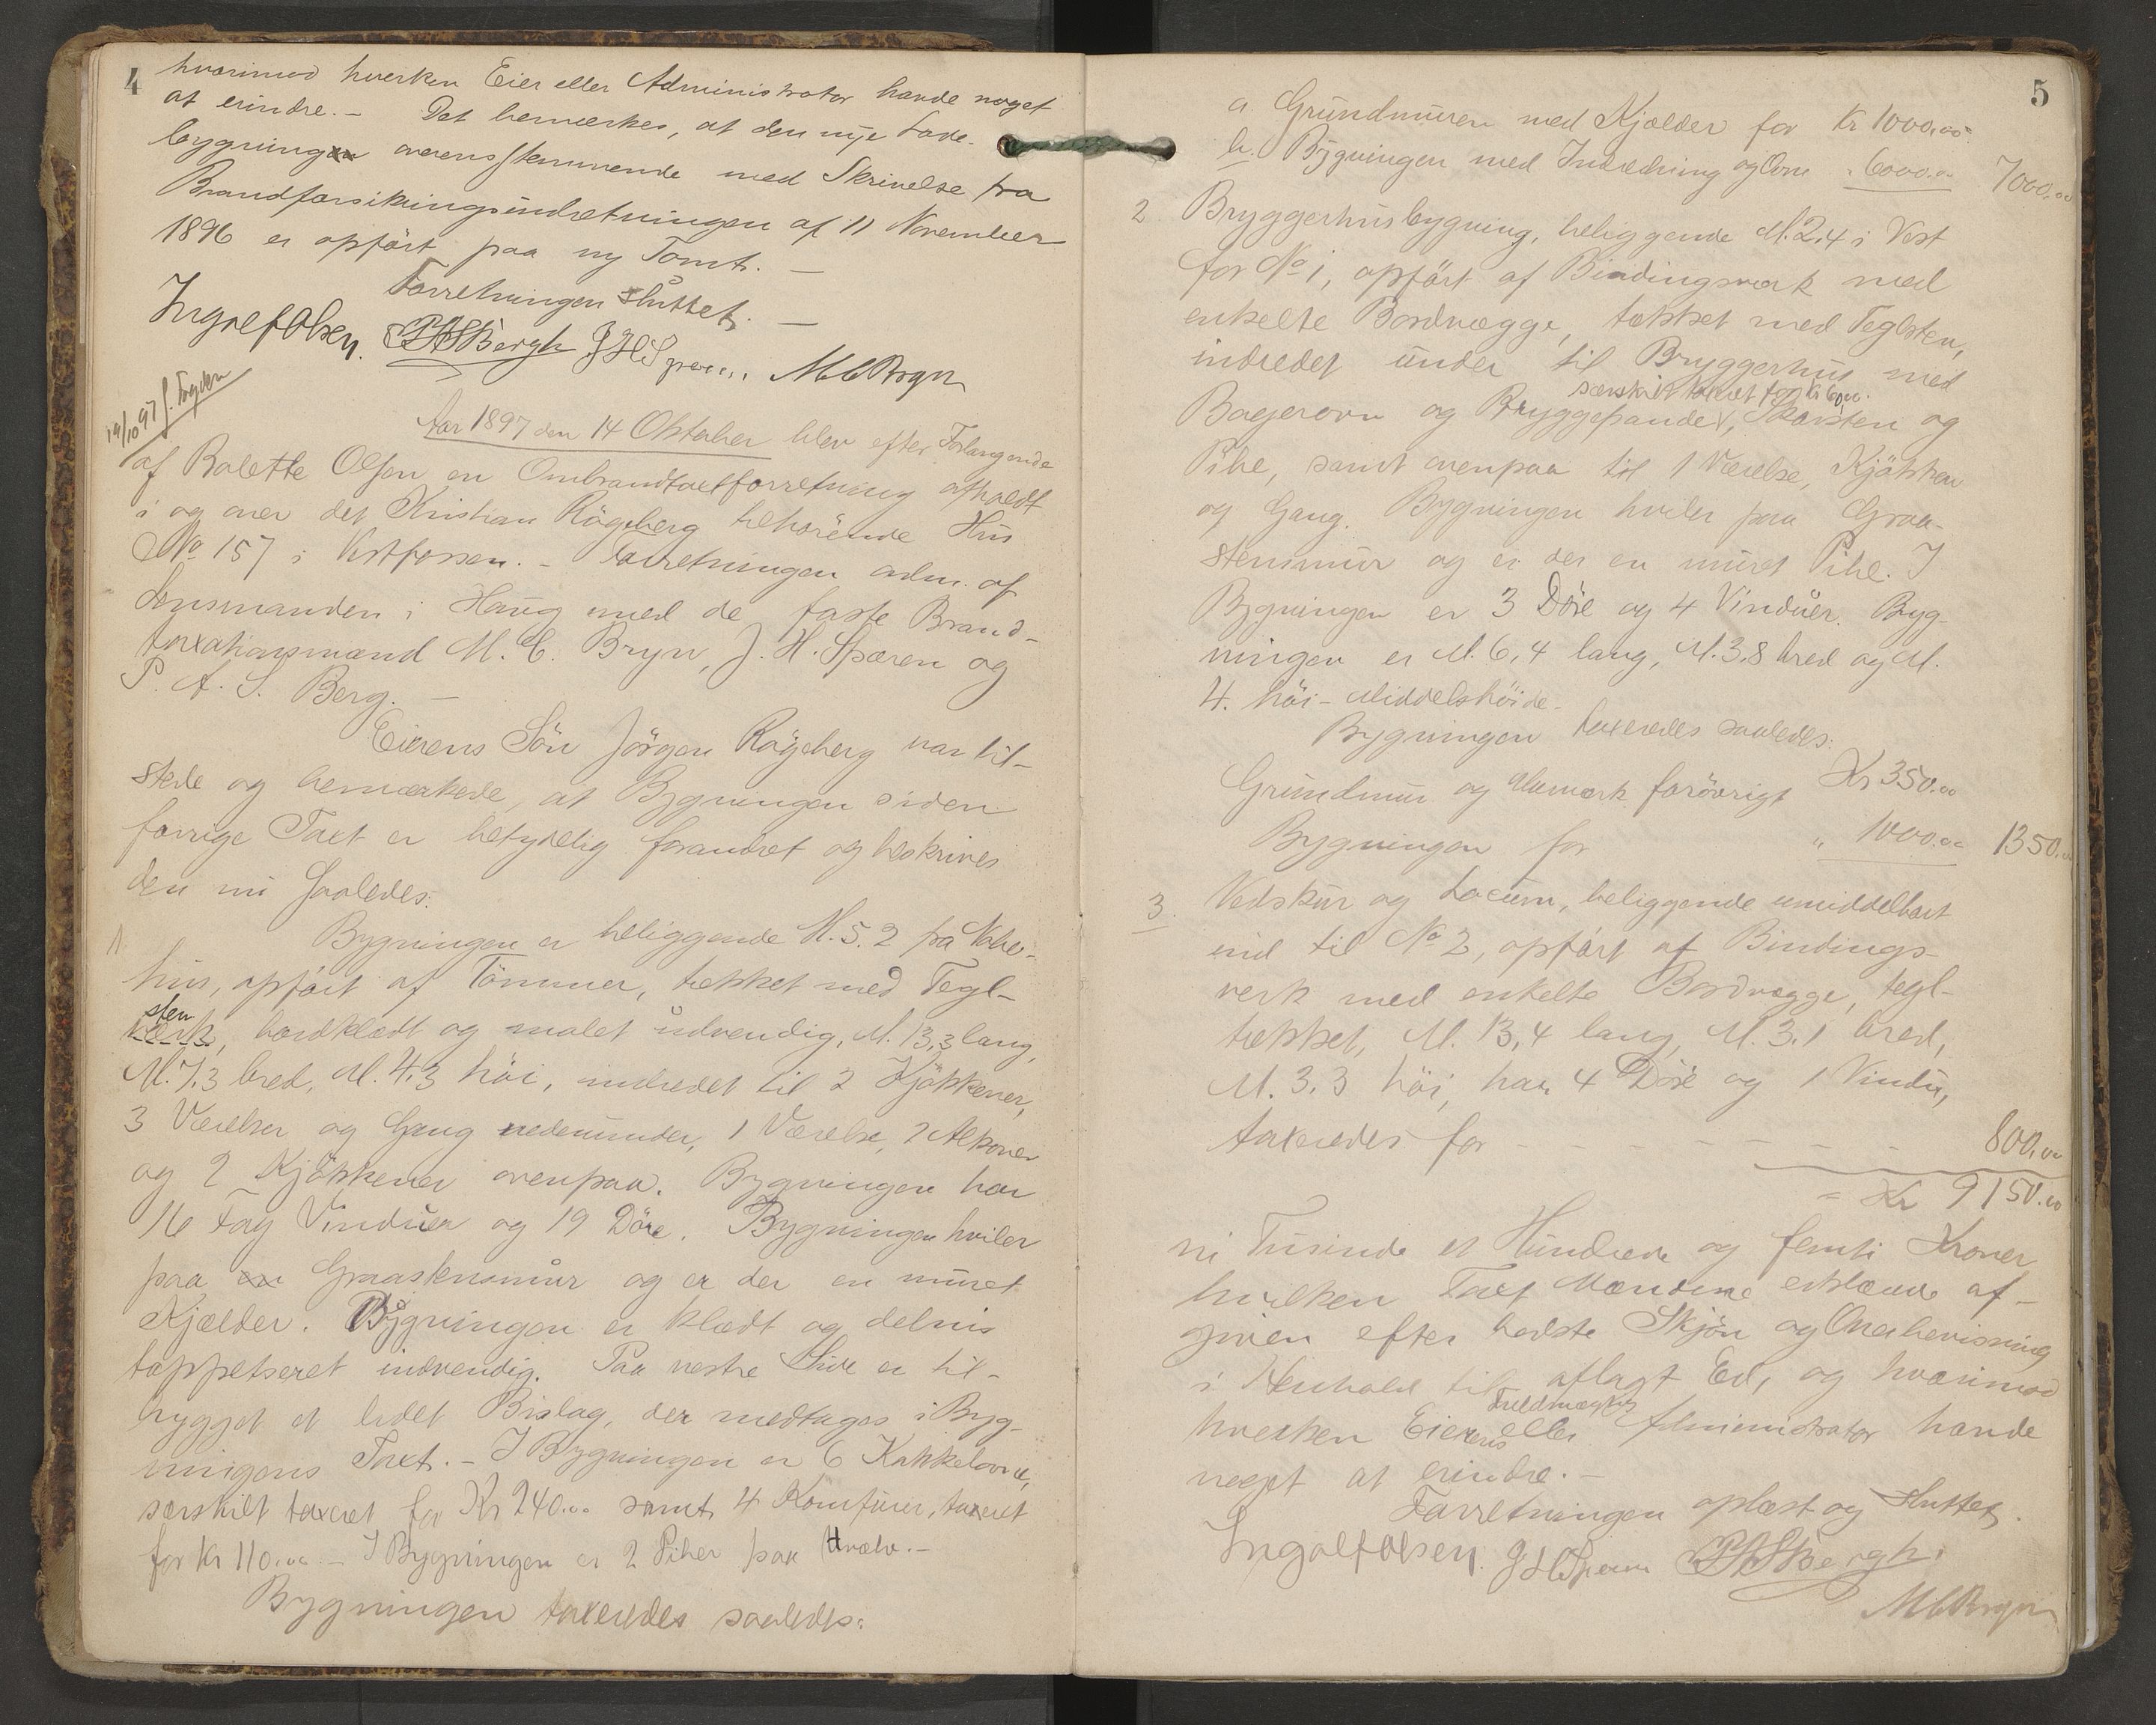 4
hvorimod hverken Eier eller Administrator havde noget
at erindre. - Det bemærkes, at den nye Lade-
bygning overensstemmende med Skrivelse fra
Brandforsikringsindretningen af 11 November
1896 er opført paa ny Tomt. -
Forretningen sluttet. -
Ingolf Olsen. PASBergh JHSpæren. MCBryn
14/10 97 f. Fogden
Aar 1897 den 14 Oktober blev efter Forlangende
af Bolette Olsen en Ombrandtaxtforretning afholdt
i og over det Kristian Røgeberg tilhørende Hus
No 157 i Vestfossen. - Forretningen adm. af
Lensmanden i Haug med de faste Brand-
taxationsmænd M. C. Bryn, J. H. Spæren og
P. A. S. Berg. -
Eierens Søn Jørgen Røgeberg var til-
stede og bemærkede, at Bygningen siden
forrige Taxt er betydelig forandret og beskrives
den nu saaledes:
1. Bygningen er beliggende M. 5.2 fra Nabo-
hus, opført af Tømmer, tækket med Tegl-
sten, bordklædt og malet udvendig, M. 13,3 lang,
M. 7,3 bred, M. 4,3 høi, indredet til 2 Kjøkkener,
3 Værelser og Gang nedenunder, 1 Værelse, 2 Alkover
og 2 Kjøkkener ovenpaa. Bygningen har
16 Fag Vinduer og 19 Døre. Bygningen hviler
paa en Graastensmur og er der en muret
Kjælder. Bygningen er klædt og delvis
tappetseret indvendig. Paa vestre Side er til-
bygget et lidet Bislag, der medtages i Byg-
ningens Taxt. - I Bygningen er 6 Kakkelovne,
særskilt taxeret for Kr 240.00 samt 4 Komfurer, taxeret
for Kr 110.00. - I Bygningen er 2 Piber paa Hvælv. -
Bygningen taxeredes saaledes:
5
a. Grundmuren med Kjælder for Kr 1000,00
b. Bygningen med Indredning og Ovne " 6000.00 7000,00
2. Bryggerhusbygning, beliggende M. 2,4 i Vest
for No 1, opført af Bindingsverk med
enkelte Bordvægge, tækket med Teglsten,
indredet under til Bryggerhus med
særskilt taxeret for Kr 60,00.
Bagerovn og Bryggepande, Skorsten og
Pibe, samt ovenpaa til 1 Værelse, Kjøkken
og Gang. Bygningen hviler paa Graa-
stensmur og er der en muret Pibe. I
Bygningen er 3 Døre og 4 Vinduer. Byg-
ningen er M. 6,4 lang, M. 3,8 bred og M.
4. høi - Middelshøide -
Bygningen taxeredes saaledes:
Grundmur og Murverk forøvrigt Kr 350.00
Bygningen for " 1000.00 1350.00
3. Vedskur og Locum, beliggende umiddelbart
ind til No 2, opført af Bindings-
verk med enkelte Bordvægge, tegl-
tækket, M. 13,4 lang, M. 3.1 bred,
M. 3.3 høi, har 4 Døre og 1 Vindu,
taxeredes for - - - - - - - - 800,00
= Kr 9150.00
ni Tusinde et Hundrede og femti Kroner
hvilken Taxt Mændene erklærede af-
given efter bedste Skjøn og Overbevisning
i Henhold til aflagt Ed, og hvorimod
Fuldmægtig
hverken Eierens eller Administrator havde
noget at erindre. -
Forretningen oplæst og sluttet.
Ingolf Olsen. JHSpæren PASBergh.
MCBryn